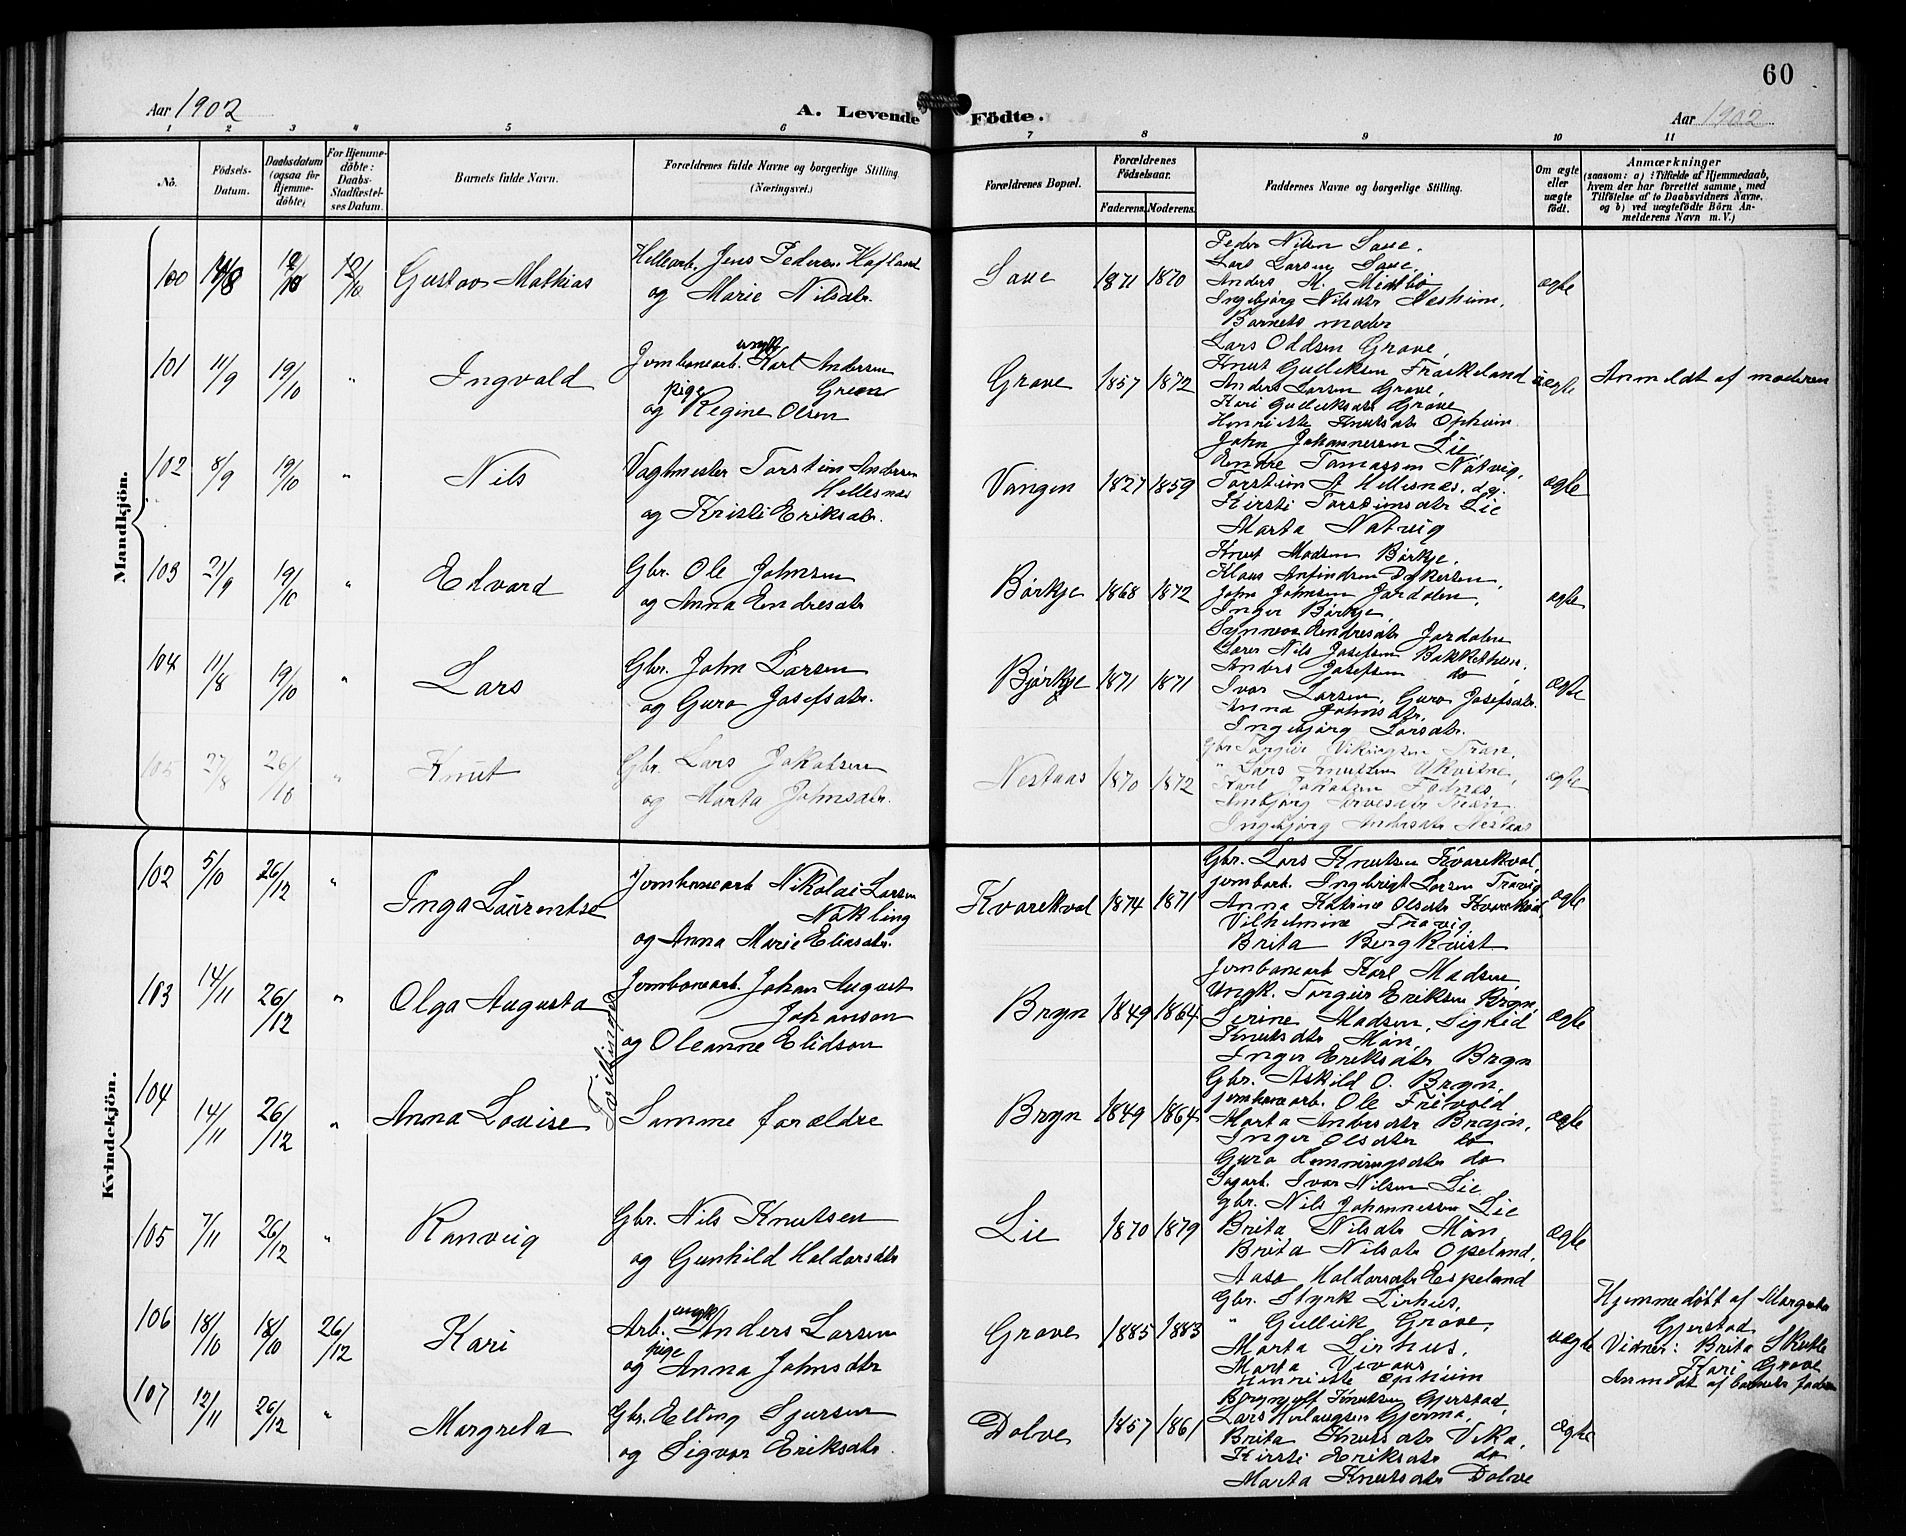 60
Aar 1902
A. Levende Födte.
Aar 1902
1 2 3 4 5 6 7 8 9 10 11
No.
Födsels-Datum.
Daabsdatum (ogsaa for Hjemme-döbte)
For Hjemme-döbte: Daabs-Stadfæstel-ses Datum.
Barnets fulde Navn.
Forældrenes fulde Navne og borgerlige Stilling. (Næringsvei.)
Forældrenes Bopæl.
Forældrenes Födselsaar.
Faderens. Moderens.
Faddernes Navne og borgerlige Stilling.
Om ægte eller uægte født.
Anmærkninger
(saasom: a) i Tilfælde af Hjemmedaab, hvem der har forrettet samme, med Tilföielse af to Daabsvidners Navne, og b) ved uægtefödte Börn An-melderens Navn m. V.)
Mandkjön.
100 19/10 12/10 Gustav Mathias
Jens Pedersen Hafland
og Marie Nilsdtr.
1871 1870
Peder Nilsen
Lars Larsen
Anders M. Midtbø
Ingebjørg Nilsdtr Nesheim,
Barnets moder
ægte
101 11/9 19/10 " Ingvald
Jernbanearb. ungk. Karl Andersen
pige
og Regine Olsen
Grove 1857 1872
Lars Oddsen Grove,
Knut Gulleksen Frækeland
Anders Larsen Grove,
Kari Gulleiksdtr Grove
Henriette Knutsdtr Opheim
uegte Anmeldt af moderen
102 8/9 19/10 " Nils
Vagtmester Torstein Andersen
Hellesnæs
og Kristi Eriksdtr.
Vangen 1827 1859
John Johannessen Lie,
Endre Tomassen Nátvig,
Torstein A Hellesnæs, og.
Kirsti Torsteinsdtr Lie
Marta Natvig
ægte
103 21/9 19/10 " Edvard
Gbr. Ole Johnsen
og Anna Endresdtr
Børkje 1868 1872
Knut Madsen Børkje,
Klaus Anfindsen Dykesten,
John Johnsen Jordalen,
Inger Børkje
Synneva Endresdtr Jordalen
ægte
104 11/8 19/10 " Lars
Gbr. John Larsen
og Guro Josefsdtr.
Bjørkje 1871 1871
Nils Josefsen Bakkethun,
Anders Josefsen do
Ivar Larsen, Guro Josefsdtr.
Anna Johnsdtr.
Ingebjørg Larsdtr.
ægte
105 27/8 26/10 " Knut
Gbr. Lars Jakobsen
og Marta Johnsdtr.
Nestaas 1870 1872
Gbr Torgeir Vikingsen Træn,
" Lars Knutsen Ukvitne,
Karl Jakobsen Fodnæs,
Ingebjørg Andersdtr Nestaas
ægte
Kvindekjön.
102 5/10 26/12 " Inga Laurentse
Jernbanearb Nikolai Larsen
Nøkling
og Anna Marie Eliasdtr.
Kvarekval 1874 1871
Gbr. Lars Knutsen Kvarekval,
jernbarb. Ingebrigt Larsen Travig
Anna Katrine Olsdtr Kvarekval,
Vilhelmine Travig
Brita BergKvist
ægte
103 14/11 26/12 " Olga Augusta
Jernbanearb. Johan August
Johanson
og Oleanne Elidson
Bryn 1849 1864
Jernbanearb Karl Madsen
Ungk. Torgeir Eriksen Bryn,
Serine Madsen, Sigrid
Knutsdtr Møn,
Inger Eriksdtr Bryn
ægte
Tvillinger
104 14/11 26/12 " Anna Lovise
Samme forældre
Bryn 1849 1864
Gbr. Askild O. Bryn,
jernbanearb. Ole Frivold
Marta Andersdtr Bryn,
Inger Olsdtr do
Guro Henningsdtr do
ægte
105 7/11 26/12 " Ranveig
Gbr. Nils Knutsen
og Gunhild Haldorsdtr
Lie 1870 1879
Ivar Nilsen Lie
gbr. Nils Johannessen Lie
Brita Nilsdtr Møn,
Brita Nilsdtr Opeland,
Aasa Haldorsdtr Espeland
ægte
106 18/10 18/10 26/12 Kari
Arb. ungk. Anders Larsen
pige
og Anna Johnsdtr
Grove 1885 1883
Gbr. Styrk Lirhus,
" Gulleik Grove,
Marta Lirhus,
Marta Vivaas
Henriette Opheim
uægte
Hjemmedøbt af Margreta
Gjerstad
Vidner: Brita Skutle
Kari Grove
Anmeldt af barnets fader
107 12/11 26/12 " Margreta
Gbr. Elling Sjursen
og Sigvor Eriksdtr.
Dolve 1857 1861
Brynjulf Knutsen Gjerstad,
Lars Herlaugsen Gjerma,
Brita Knutsdtr Vika,
Kirsti Eriksdtr do
Marta Knutsdtr Dolve
ægte